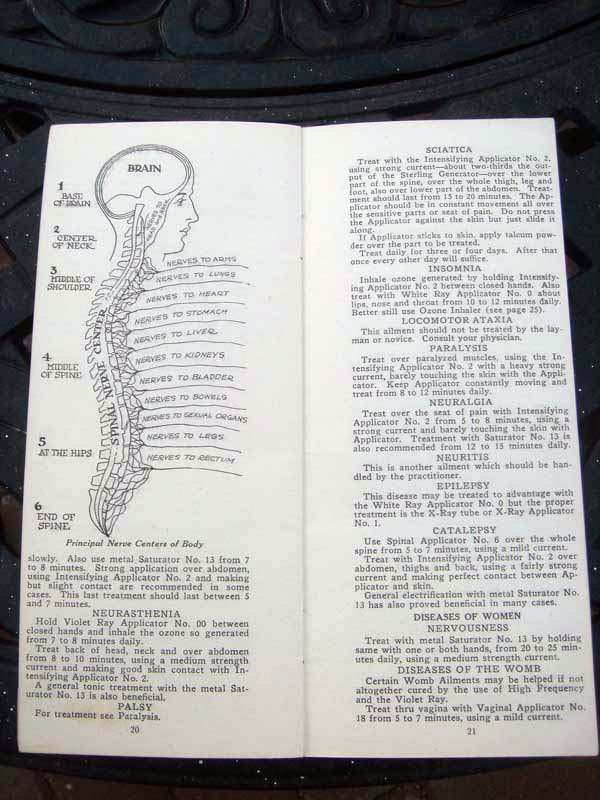 BRAIN
1
BASE
OF BRAIN
2
CENTER
OF NECK
3
MIDDLE OF
SHOULDER
4
MIDDLE
OF SPINE
5
AT THE HIPS
6
END OF
SPINE
SPINAL NERVE CENTER
NERVES TO ARMS
NERVES TO LUNGS
NERVES TO HEART
NERVES TO STOMACH
NERVES TO LIVER
NERVES TO KIDNEYS
NERVES TO BLADDER
NERVES TO BOWELS
NERVES TO SEXUAL ORGANS
NERVES TO LEGS
NERVES TO RECTUM
Principal Nerve Centers of Body
slowly. Also use metal Saturator No. 13 from 7
to 8 minutes. Strong application over abdomen,
using Intensifying Applicator No. 2 and making
but slight contact are recommended in some
cases. This last treatment should last between 5
and 7 minutes.
NEURASTHENIA
Hold Violet Ray Applicator No. 00 between
closed hands and inhale the ozone so generated
from 7 to 8 minutes daily.
Treat back of head, neck and over abdomen
from 8 to 10 minutes, using a medium strength
current and making good skin contact with In-
tensifying Applicator No. 2.
A general tonic treatment with the metal Sat-
urator No. 13 is also beneficial.
PALSY
For treatment see Paralysis.
20
SCIATICA
Treat with the Intensifying Applicator No. 2,
using strong current—about two-thirds the out-
put of the Sterling Generator—over the lower
part of the spine, over the whole thigh, leg and
foot, also over lower part of the abdomen. Treat-
ment should last from 15 to 20 minutes. The Ap-
plicator should be in constant movement all over
the sensitive parts or seat of pain. Do not press
the Applicator against the skin but just slide it
along.
If Applicator sticks to skin, apply talcum pow-
der over the part to be treated.
Treat daily for three or four days. After that
once every other day will suffice.
INSOMNIA
Inhale ozone generated by holding Intensify-
ing Applicator No. 2 between closed hands. Also
treat with White Ray Applicator No. 0 about
lips, nose and throat from 10 to 12 minutes daily.
Better still use Ozone Inhaler (see page 25).
LOCOMOTOR ATAXIA
This ailment should not be treated by the lay-
man or novice. Consult your physician.
PARALYSIS
Treat over paralyzed muscles, using the In-
tensifying Applicator No. 2 with a heavy strong
current, barely touching the skin with the Appli-
cator. Keep Applicator constantly moving and
treat from 8 to 12 minutes daily.
NEURALGIA
Treat over the seat of pain with Intensifying
Applicator No. 2 from 5 to 8 minutes, using a
strong current and barely touching the skin with
Applicator. Treatment with Saturator No. 13 is
also recommended from 12 to 15 minutes daily.
NEURITIS
This is another ailment which should be han-
dled by the practitioner.
EPILEPSY
This disease may be treated to advantage with
the White Ray No. 0 but the proper
treatment is the X-Ray tube or X-Ray Applicator
No. 1.
CATALEPSY
Use Spinal Applicator No. 6 over the whole
spine from 5 to 7 minutes, using a mild current.
Treat with Intensifying Applicator No. 2 over
abdomen, thighs and back, using a fairly strong
current and making perfect contact between Ap-
plicator and skin.
General electrification with metal Saturator No.
13 has also proved beneficial in many cases.
DISEASES OF WOMEN
NERVOUSNESS
Treat with metal Saturator No. 13 by holding
same with one or both hands, from 20 to 25 min-
utes daily, using a medium strength current.
DISEASES OF THE WOMB
Certain Womb Ailments may be helped if not
altogether cured by the use of High Frequency
and the Violet Ray.
Treat thru vagina with Vaginal Applicator No.
18 from 5 to 7 minutes, using a mild current.
21